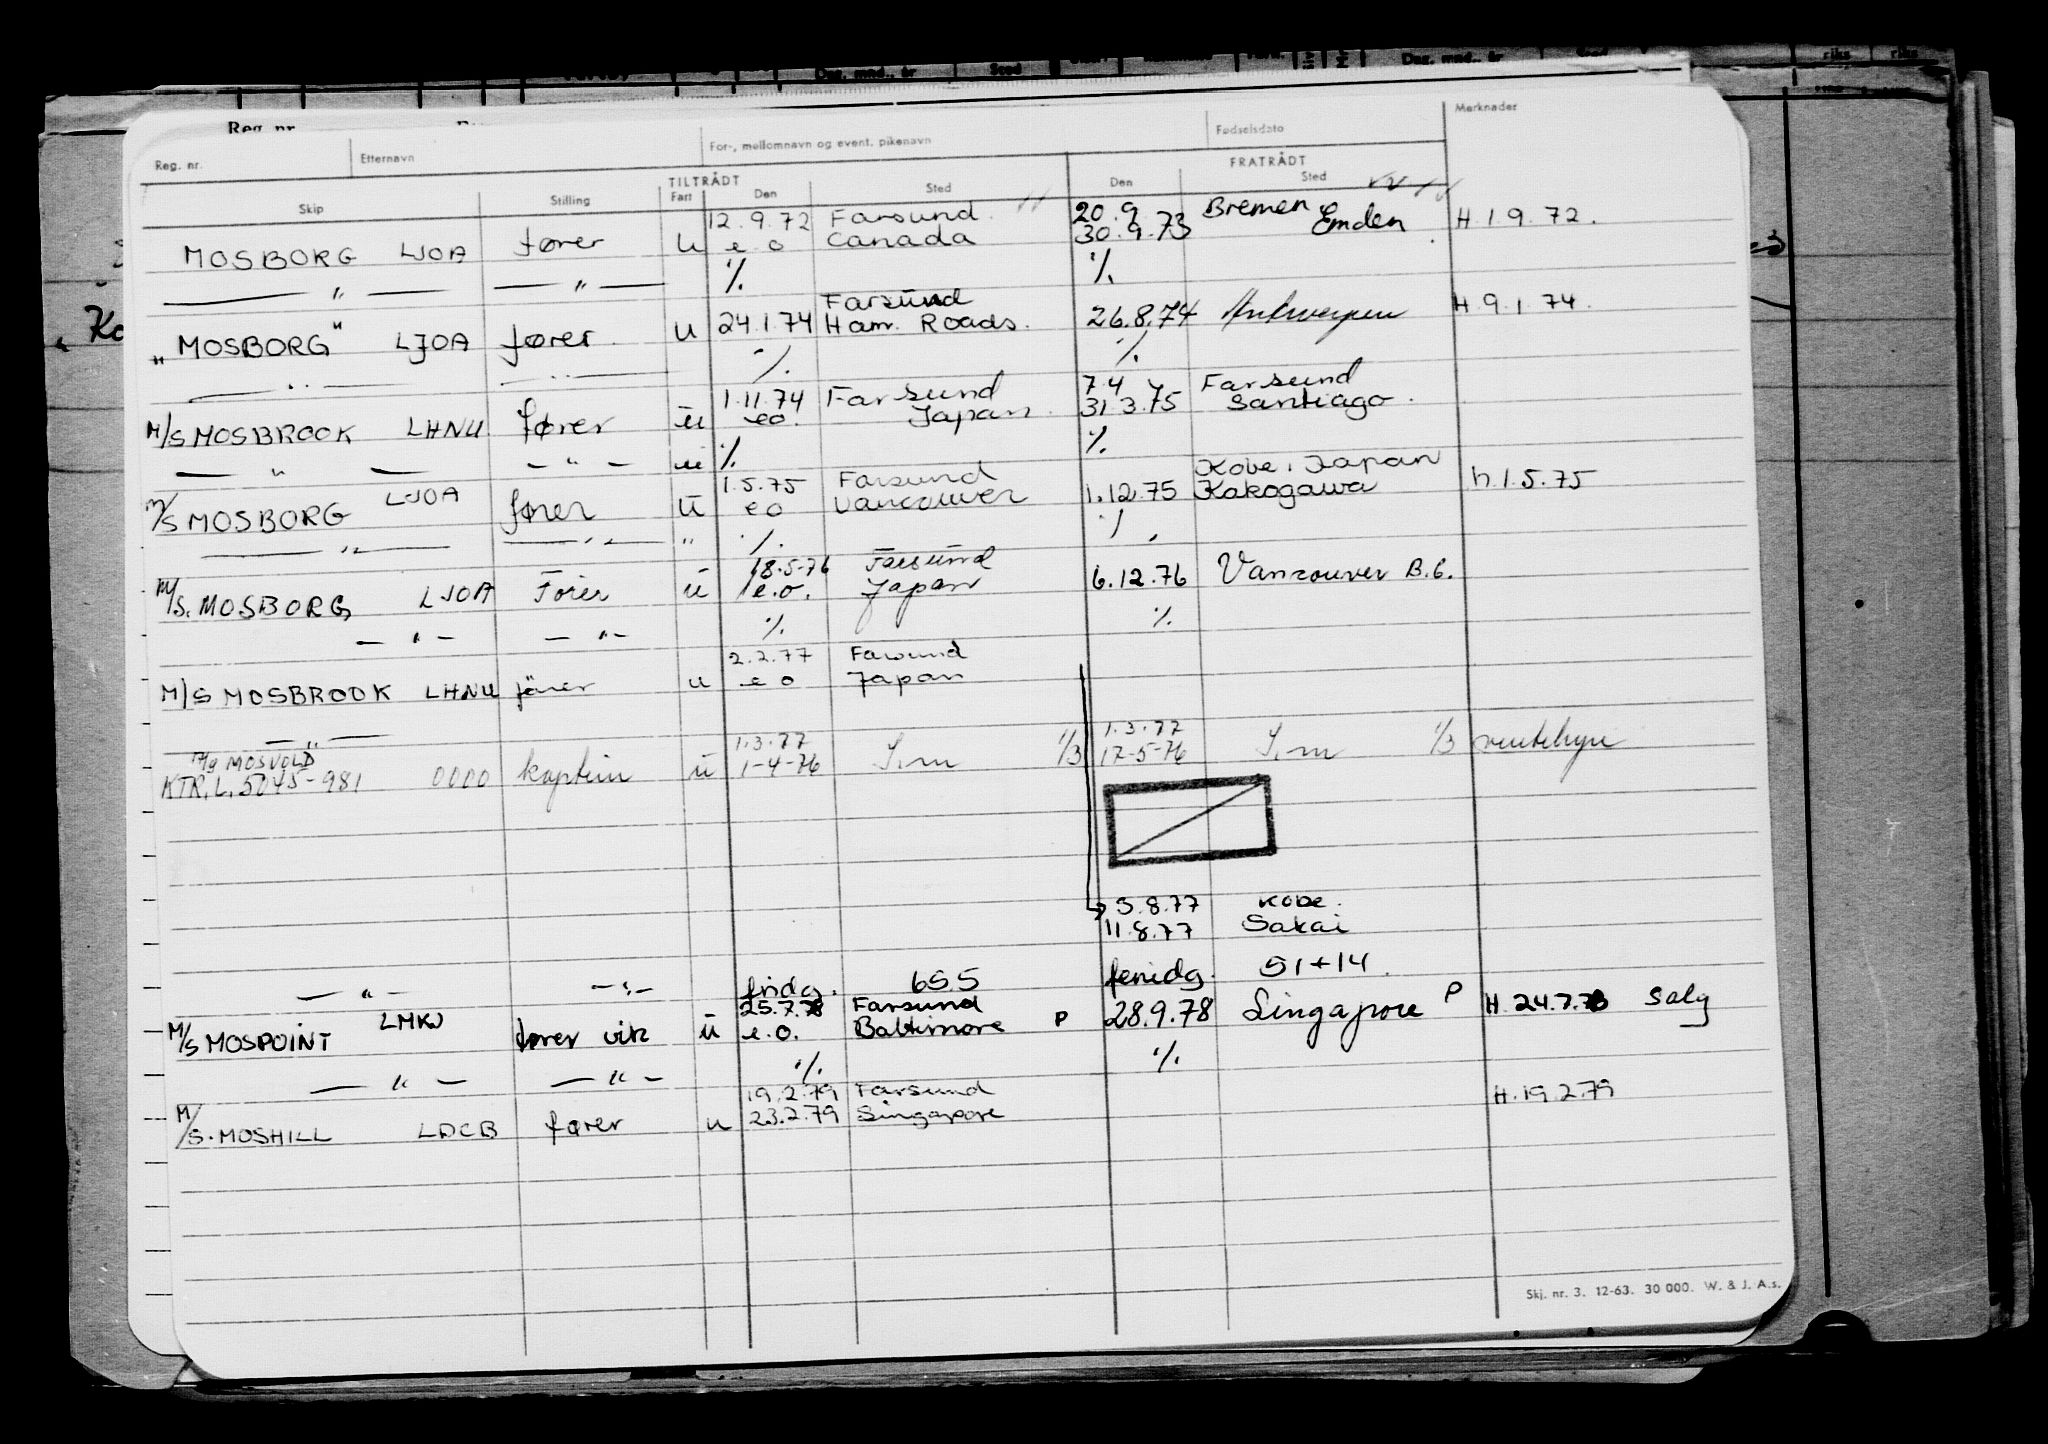 Reg. nr.
Reg. nr. Etternavn For-, mellomnavn og event. pikenavn Fødselsdato Merknader
TILTRÅDT FRATRÅDT
Skip Stilling Fart Den Sted Den Sted
12.9.72 Farsund 20.9 Bremen
MOSBORG LJOA fører u e o Canada 30.9.73 Emden H.1.9.72.
— " — — " — % %
Farsund
"MOSBORG" LJOA fører u 24.1.74 Ham. Roads. 26.8.74 Antwerpen H.9.1.74.
— " — — " — % %
1.11.74 Farsund 7.4 Farsund
M/S MOSBROOK LHNU fører u eo. Japan. 31.3.75 Santiago.
— " — — " — u % %
1.5.75 Farsund Kobe, Japan
M/S MOSBORG LJOA fører u eo Vancouver 1.12.75 Kakogawa h.1.5.75
— " — — " — " % %
18.5-76 Farsund
M/S. MOSBORG LJOA Fører u e.o. Japan 6.12.76 Vancouver B.C.
— " — — " — % %
2.2.77 Farsund
M/S MOSBROOK LHNU fører u e o Japan
— " —
1.3.77 1.3.77
M/S MOSVOLD
KTR.L.5045-981 0000 kaptein u 1-4-76 1/3 17-5-76 1/3 ventehyre
5.8.77 Kobe.
11.8.77 Sakai
— " — — " — 655 feridg. 51+14.
25.7.78 Farsund
M/S MOSPOINT LMKJ fører vik u e.o. Baltimore P 28.9.78 Singapore P H.24.7.78 Salg
— " — — " — % %
19.2.79 Farsund
M/S. MOSHILL LDCB fører u 23.2.79 Singapore H.19.2.79
Skj. nr. 3. 12-63. 30 000. W. & J. A.s.